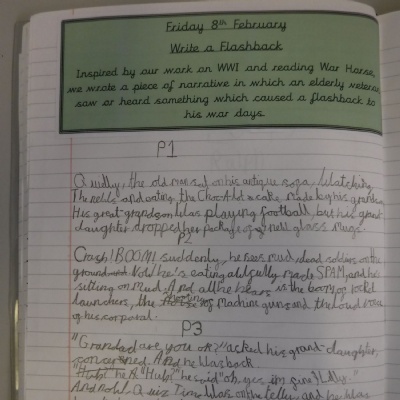 Friday 8th February
Write a Flashback
Inspired by our work on WWI and reading War Horse,
we wrote a piece of narrative in which an elderly veteran
saw or heard something which caused a flashback to
his war days.
P1
Quietly, the old man sat on his antique soga, Watching
The and eating the cake made by his
His great-grandson, Was playing football, but his great
daughter dropped her package of glass mugs.
P2
Crash! BOOM! suddenly, he sees mud, dead soldiers on the
ground Now he's eating made SPAM, and he's
sitting on mud. And all he hears is the of
launchers, the of machine guns and the loud
of his corporal.
P3
"Grandad are you ok?" asked his grand-daughter,
concerned. And he was back
"Huh? "Huh" he said "oh, yes im gine
And now! A quiz Time Was on the telly, and he Was